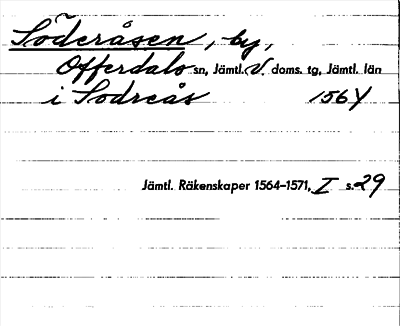 Söderåsen, by,
Offerdals sn, Jämtl. V. doms. tg, Jämtl. län
i Sodreås 1564
Jämtl. Räkenskaper 1564–1571, I s. 29